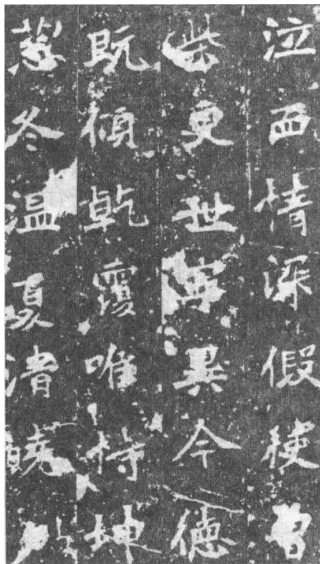 泣血情深假使曾
柴更世寧異今德
既傾乾覆唯恃坤
慈冬温夏清曉